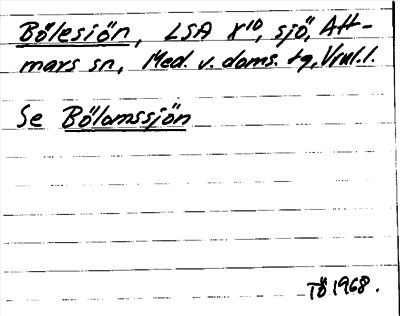 Bölesjön, LSA X¹⁰, sjö, Att-
mars sn, Med. v. doms. tg, Vnl. l.
Se Bölomssjön
TÖ 1968.